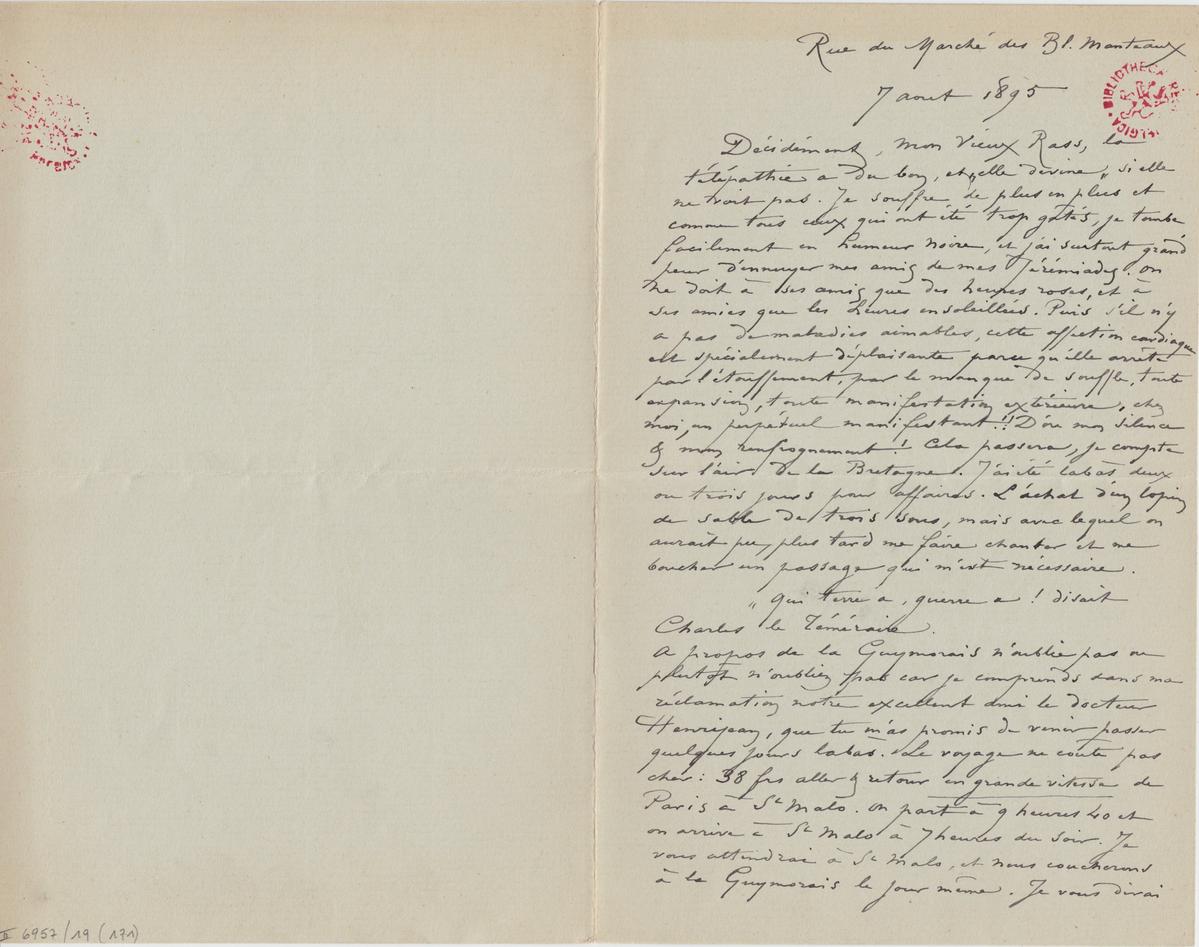 Rue du Marché des Bl. Manteaux
7 aout 1895
BIBLIOTHECA RE
Décidément, mon vieux Rass, la
télépathie a du bon, et „elle devine„ si elle
ne voit pas. Je souffre de plus en plus et
comme tous ceux qui ont été trop gâtés, je tombe
facilement en humeur noire, et j'ai surtout grand
peur d'ennuyer mes amis de mes Jérémiades. On
ne doit à ses amis que des heures roses, et à
ses amies que les heures ensoleillées. Puis s'il n'y
a pas de maladies aimables, cette affection cardiaque
est spécialement déplaisante parce qu'elle arrête
par l'étouffement, par le manque de souffle, toute
expansion, toute manifestation extérieure, chez
moi, un perpétuel manifestant!! D'ore mon silence
& mon renfrognement! Cela passera, je compte
sur l'air de la Bretagne. J'ai été labàs deux
ou trois jours pour affaires. L'achat d'un lopin
de sable de trois sous, mais avec lequel on
aurait pu, plus tard me faire chanter et me
boucher un passage qui m'est nécessaire.
„Qui terre a, guerre a! disait
Charles le Téméraire.
A propos de la Guymorais n'oublie pas ou
plutôt n'oubliez pas car je comprends dans ma
réclamation notre excellent ami le docteur
Henrijean, que tu m'as promis de venir passer
quelques jours labàs. Le voyage ne coûte pas
cher: 38 frs aller & retour en grande vitesse de
Paris à St Malo. On part à 9 heures 40 et
on arrive à St Malo à 7 heures du soir. Je
vous attendrai à St Malo, et nous coucherons
à la Guymorais le jour même. Je vous dirai
II 6957/19 (171)